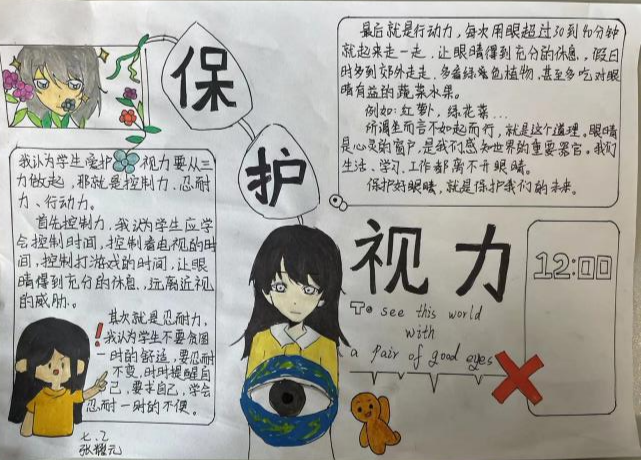 保
护
视力
To see this world
with
a pair of good eyes
12:00
我认为学生爱护视力要从三
力做起,那就是控制力、忍耐
力、行动力。
首先控制力,我认为学生应学
会控制时间,控制看电视的时
间,控制打游戏的时间,让眼
睛得到充分的休息,远离近视
的威胁。
其次就是忍耐力,
我认为学生不要贪图
一时的舒适,要忍耐
不变,时时提醒自
己,要求自己,学会
忍耐一时的不便。
最后就是行动力,每次用眼超过30到40分钟
就起来走一走,让眼睛得到充分的休息,假日
时多到郊外走走,多看绿色植物,甚至多吃对眼
睛有益的蔬菜水果。
例如:红萝卜,绿花菜...
所谓坐而言不如起而行,就是这个道理。眼睛
是心灵的窗户,是我们感知世界的重要器官。我们
生活、学习、工作都离不开眼睛。
保护好眼睛,就是保护我们的未来。
七.2
张耀元